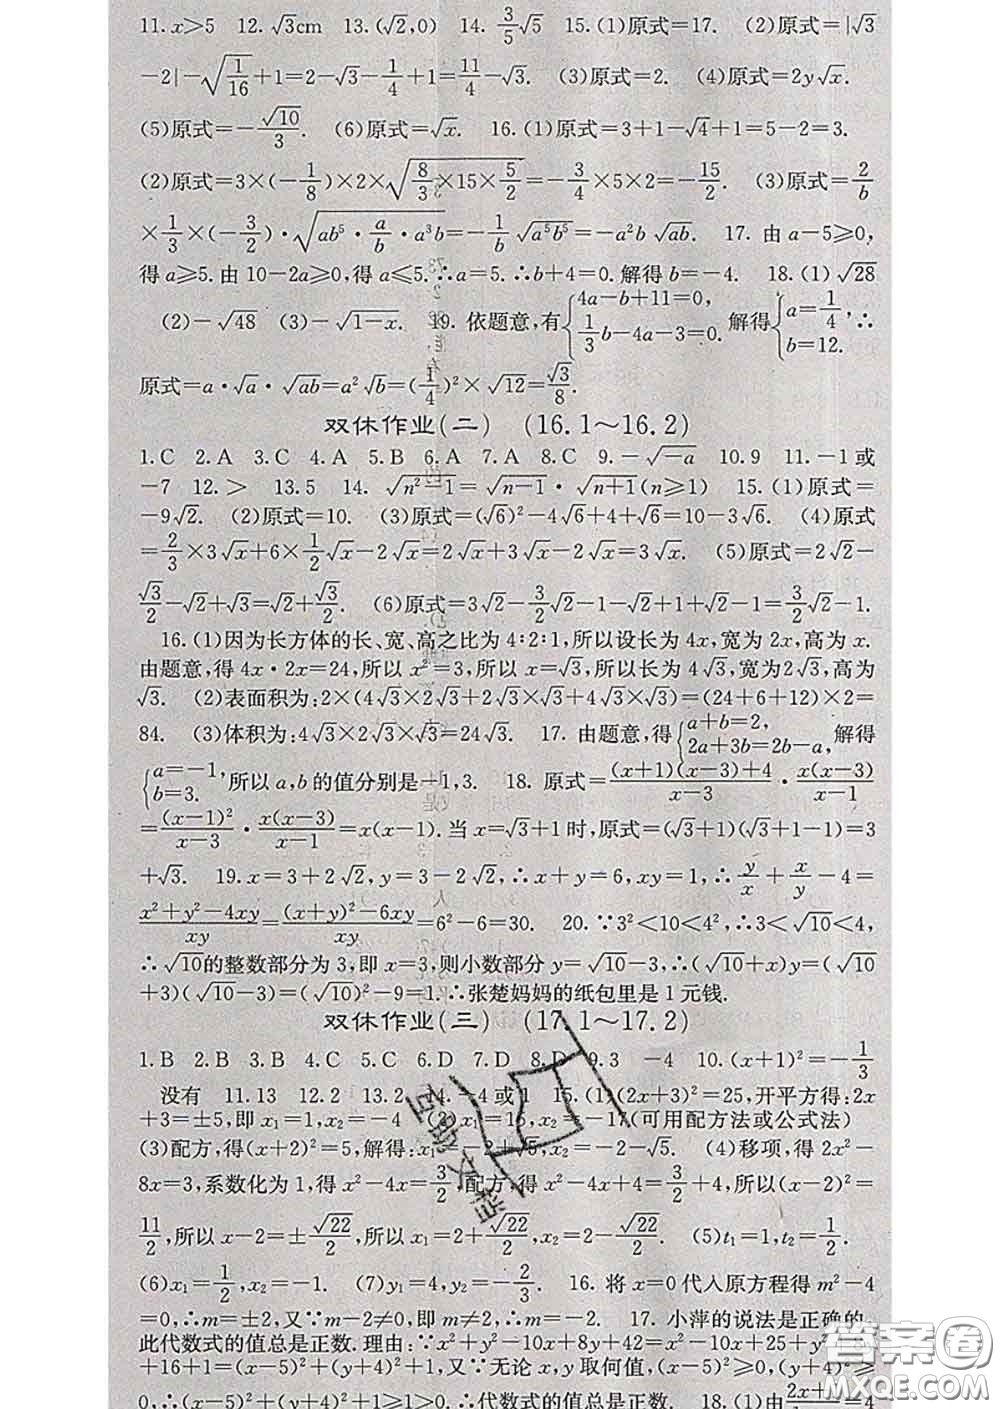 11. x≥5　12. √3cm　13. (√2,0)　14. 3/5√5　15. (1)原式=17.　(2)原式=|√3
-2|-√(1/16)+1=2-√3-1/4+1=11/4-√3.　(3)原式=2.　(4)原式=2y√x.
(5)原式=-√10/3.　(6)原式=√x.　16. (1)原式=3+1-√4+1=5-2=3.
(2)原式=3×(-1/8)×2×√(8/3×15×5/2)=-3/4×5×2=-15/2.　(3)原式=2/b
×1/3×(-3/2)·√(ab⁵·a/b·a³b)=-1/b√(a⁵b⁵)=-a²b√(ab).　17. 由a-5≥0,
得a≥5.由10-2a≥0,得a≤5.∴a=5.∴b+4=0.解得b=-4.　18. (1)√28
(2)-√48　(3)-√(1-x).　19. 依题意,有{4a-b+11=0, 1/3b-4a-3=0. 解得{a=1/4, b=12. ∴
原式=a·√a·√(ab)=a²√b=(1/4)²×√12=√3/8.
双休作业(二)　(16.1～16.2)
1. C　2. A　3. C　4. A　5. B　6. A　7. A　8. C　9. -√(-a)　10. 9　11. -1或
-7　12. >　13. 5　14. √(n²-1)=√(n-1)·√(n+1)(n≥1)　15. (1)原式=
-9√2.　(2)原式=10.　(3)原式=(√6)²-4√6+4+√6=10-3√6.　(4)原式
=2/3×3√x+6×1/2√x-2√x=2√x+3√x-2√x=3√x.　(5)原式=2√2-
√3/2-√2+√3=√2+√3/2.　(6)原式=3√2-3/2√2-1-√2+1+√2-1=3/2√2-1.
16. (1)因为长方体的长、宽、高之比为4:2:1,所以设长为4x,宽为2x,高为x.
由题意,得4x·2x=24,所以x²=3,所以x=√3,所以长为4√3,宽为2√3,高为
√3.　(2)表面积为:2×(4√3×2√3+2√3×√3+4√3×√3)=(24+6+12)×2=
84.　(3)体积为:4√3×2√3×√3=24√3.　17. 由题意,得{a+b=2, 2a+3b=2b-a, 解得
{a=-1, b=3. 所以a,b的值分别是-1,3.　18. 原式=((x+1)(x-3)+4)/(x-3)·x(x-3)/(x-1)
=(x-1)²/(x-3)·x(x-3)/(x-1)=x(x-1).当x=√3+1时,原式=(√3+1)(√3+1-1)=3
+√3.　19. x=3+2√2,y=3-2√2,∴x+y=6,xy=1,∴y/x+x/y-4=
(x²+y²-4xy)/xy=((x+y)²-6xy)/xy=6²-6=30.　20. ∵3²<10<4²,∴3<√10<4,
∴√10的整数部分为3,即x=3,则小数部分y=√10-3,∴(√10+x)y=(√10
+3)(√10-3)=(√10)²-9=1.∴张楚妈妈的纸包里是1元钱.
双休作业(三)　(17.1～17.2)
1. B　2. B　3. B　4. C　5. C　6. D　7. D　8. D　9. 3　-4　10. (x+1)²=-1/3
没有　11. 13　12. 2　13. 2　14. -4或1　15. (1)(2x+3)²=25,开平方得:2x
+3=±5,即x₁=1,x₂=-4　(2)x₁=15,x₂=-17(可用配方法或公式法)
(3)配方,得(x+2)²=5,解得:x₁=-2+√5,x₂=-2-√5.　(4)移项,得2x²-
8x=3,系数化为1,得x²-4x=3/2,配方,得x²-4x+4=3/2+4,所以(x-2)²=
11/2,所以x-2=±√22/2,所以x₁=2+√22/2,x₂=2-√22/2.　(5)t₁=1,t₂=1/2.
(6)x₁=1/2,x₂=-1.　(7)y₁=4,y₂=-2/3.　16. 将x=0代入原方程得m²-4
=0,∴m=±2,又∵m-2≠0,即m≠2,∴m=-2.　17. 小萍的说法是正确的.
此代数式的值总是正数.理由:∵x²+y²-10x+8y+42=x²-10x+25+y²+8y
+16+1=(x-5)²+(y+4)²+1,又∵无论x,y取何值,(x-5)²≥0,(y+4)²≥
0,∴(x-5)²+(y+4)²+1≥1>0.∴代数式的值总是正数.　18. (1)由2x+ =4
互助文档
答案圈
MXQE.COM